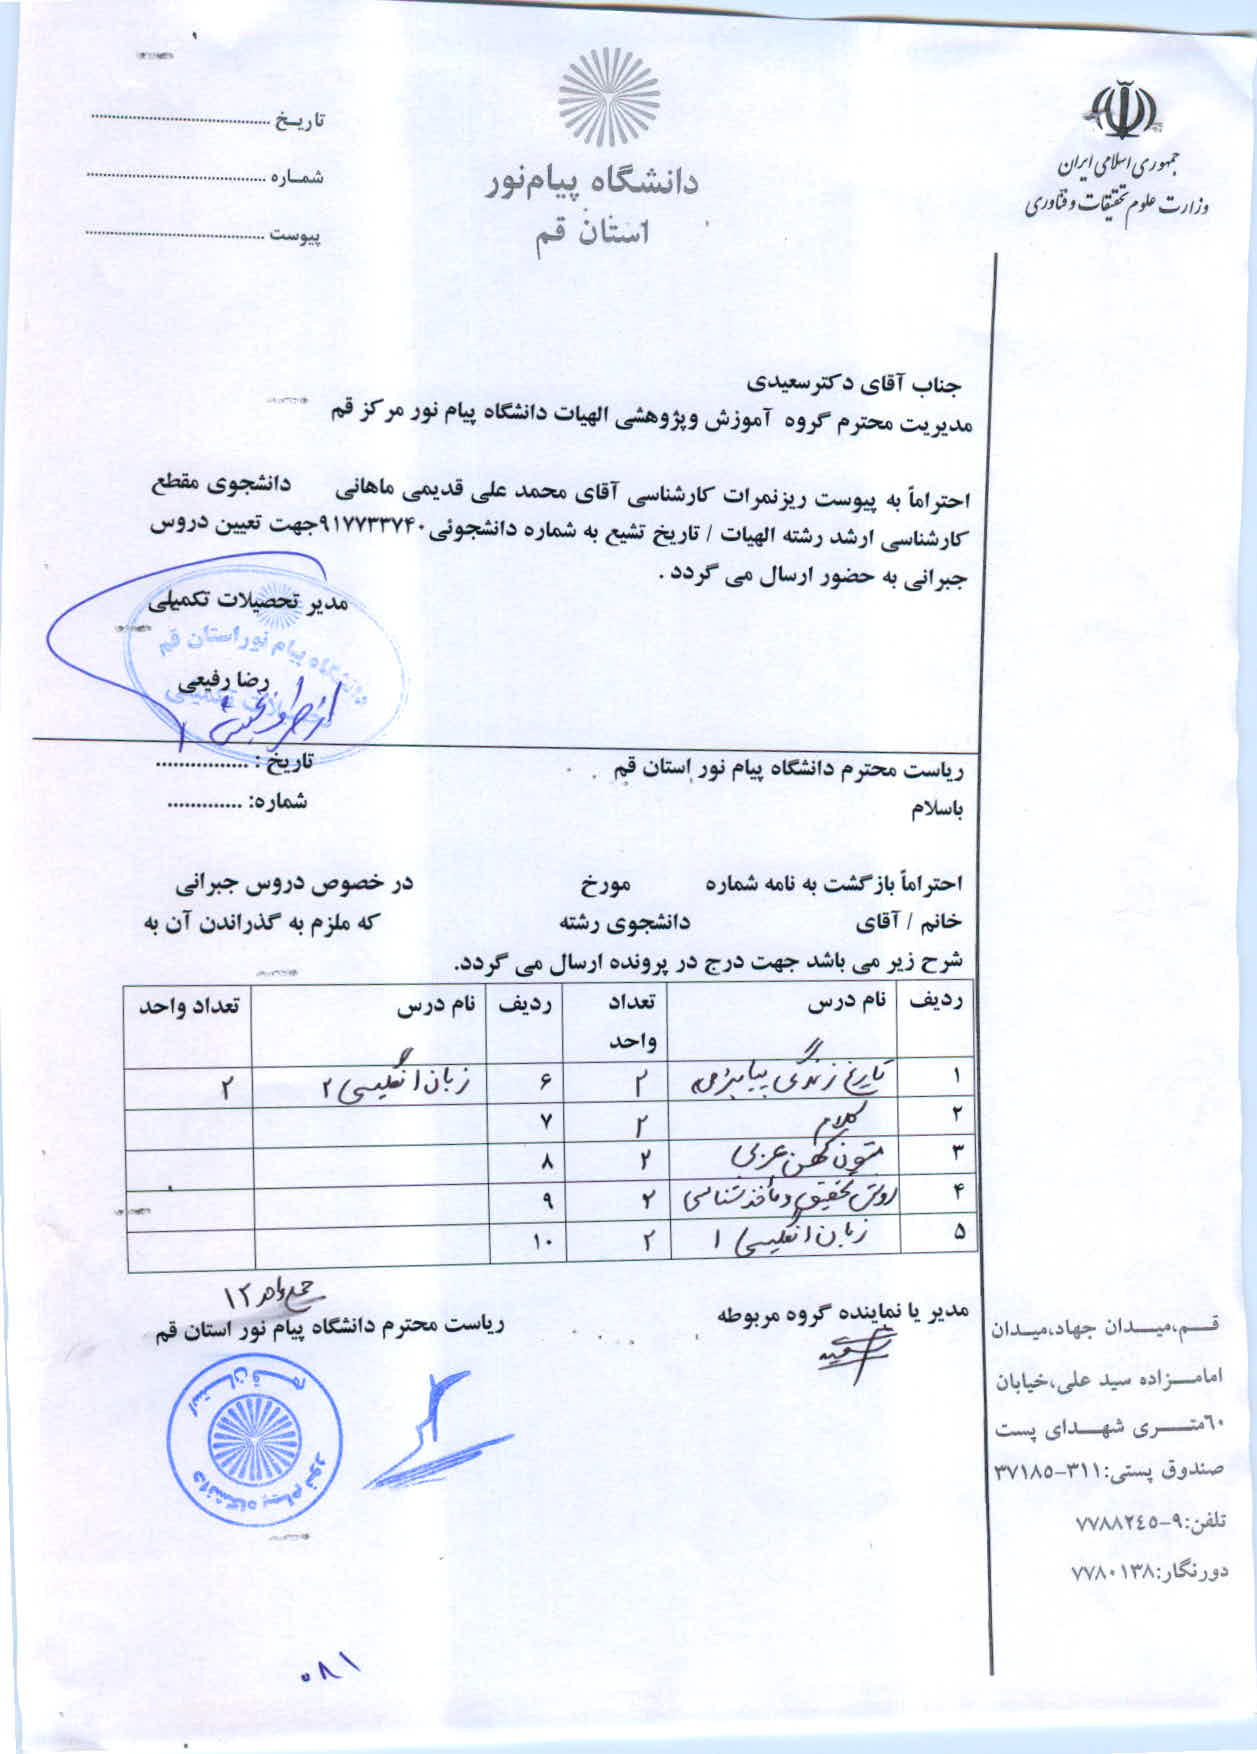 جمهوری اسلامی ایران
وزارت علوم تحقیقات و فناوری
دانشگاه پیام‌نور
استان قم
تاریـخ ........................................
شمـاره ........................................
پیوست ........................................
جناب آقای دکترسعیدی
مدیریت محترم گروه آموزش وپژوهشی الهیات دانشگاه پیام نور مرکز قم
احتراماً به پیوست ریزنمرات کارشناسی آقای محمد علی قدیمی ماهانی دانشجوی مقطع
کارشناسی ارشد رشته الهیات / تاریخ تشیع به شماره دانشجوئی ۹۱۷۷۳۳۷۴۰جهت تعیین دروس
جبرانی به حضور ارسال می گردد .
مدیر تحصیلات تکمیلی
دانشگاه پیام نور استان قم
تحصیلات تکمیلی
رضا رفیعی
ریاست محترم دانشگاه پیام نور استان قم
تاریخ : ................
باسلام
شماره: .............
احتراماً بازگشت به نامه شماره مورخ در خصوص دروس جبرانی
خانم / آقای دانشجوی رشته که ملزم به گذراندن آن به
شرح زیر می باشد جهت درج در پرونده ارسال می گردد.
ردیف نام درس تعداد واحد ردیف نام درس تعداد واحد
۱ تاریخ زندگی پیامبر (ص) ۲ ۶ زبان انگلیسی ۲ ۲
۲ کلام ۲ ۷
۳ متون کهن عربی ۲ ۸
۴ روش تحقیق و مأخذشناسی ۲ ۹
۵ زبان انگلیسی ۱ ۲ ۱۰
جمع واحد ۱۲
مدیر یا نماینده گروه مربوطه
ریاست محترم دانشگاه پیام نور استان قم
دانشگاه پیام نور
استان قم
قـــم،میـــدان جهاد،میدان
امامـــزاده سید علی،خیابان
٦٠متـــری شهـــدای پست
صندوق پستی:۳۱۱-۳۷۱۸۵
تلفن:۹-۷۷۸۸۲٤۵
دورنگار:۷۷۸۰۱۳۸